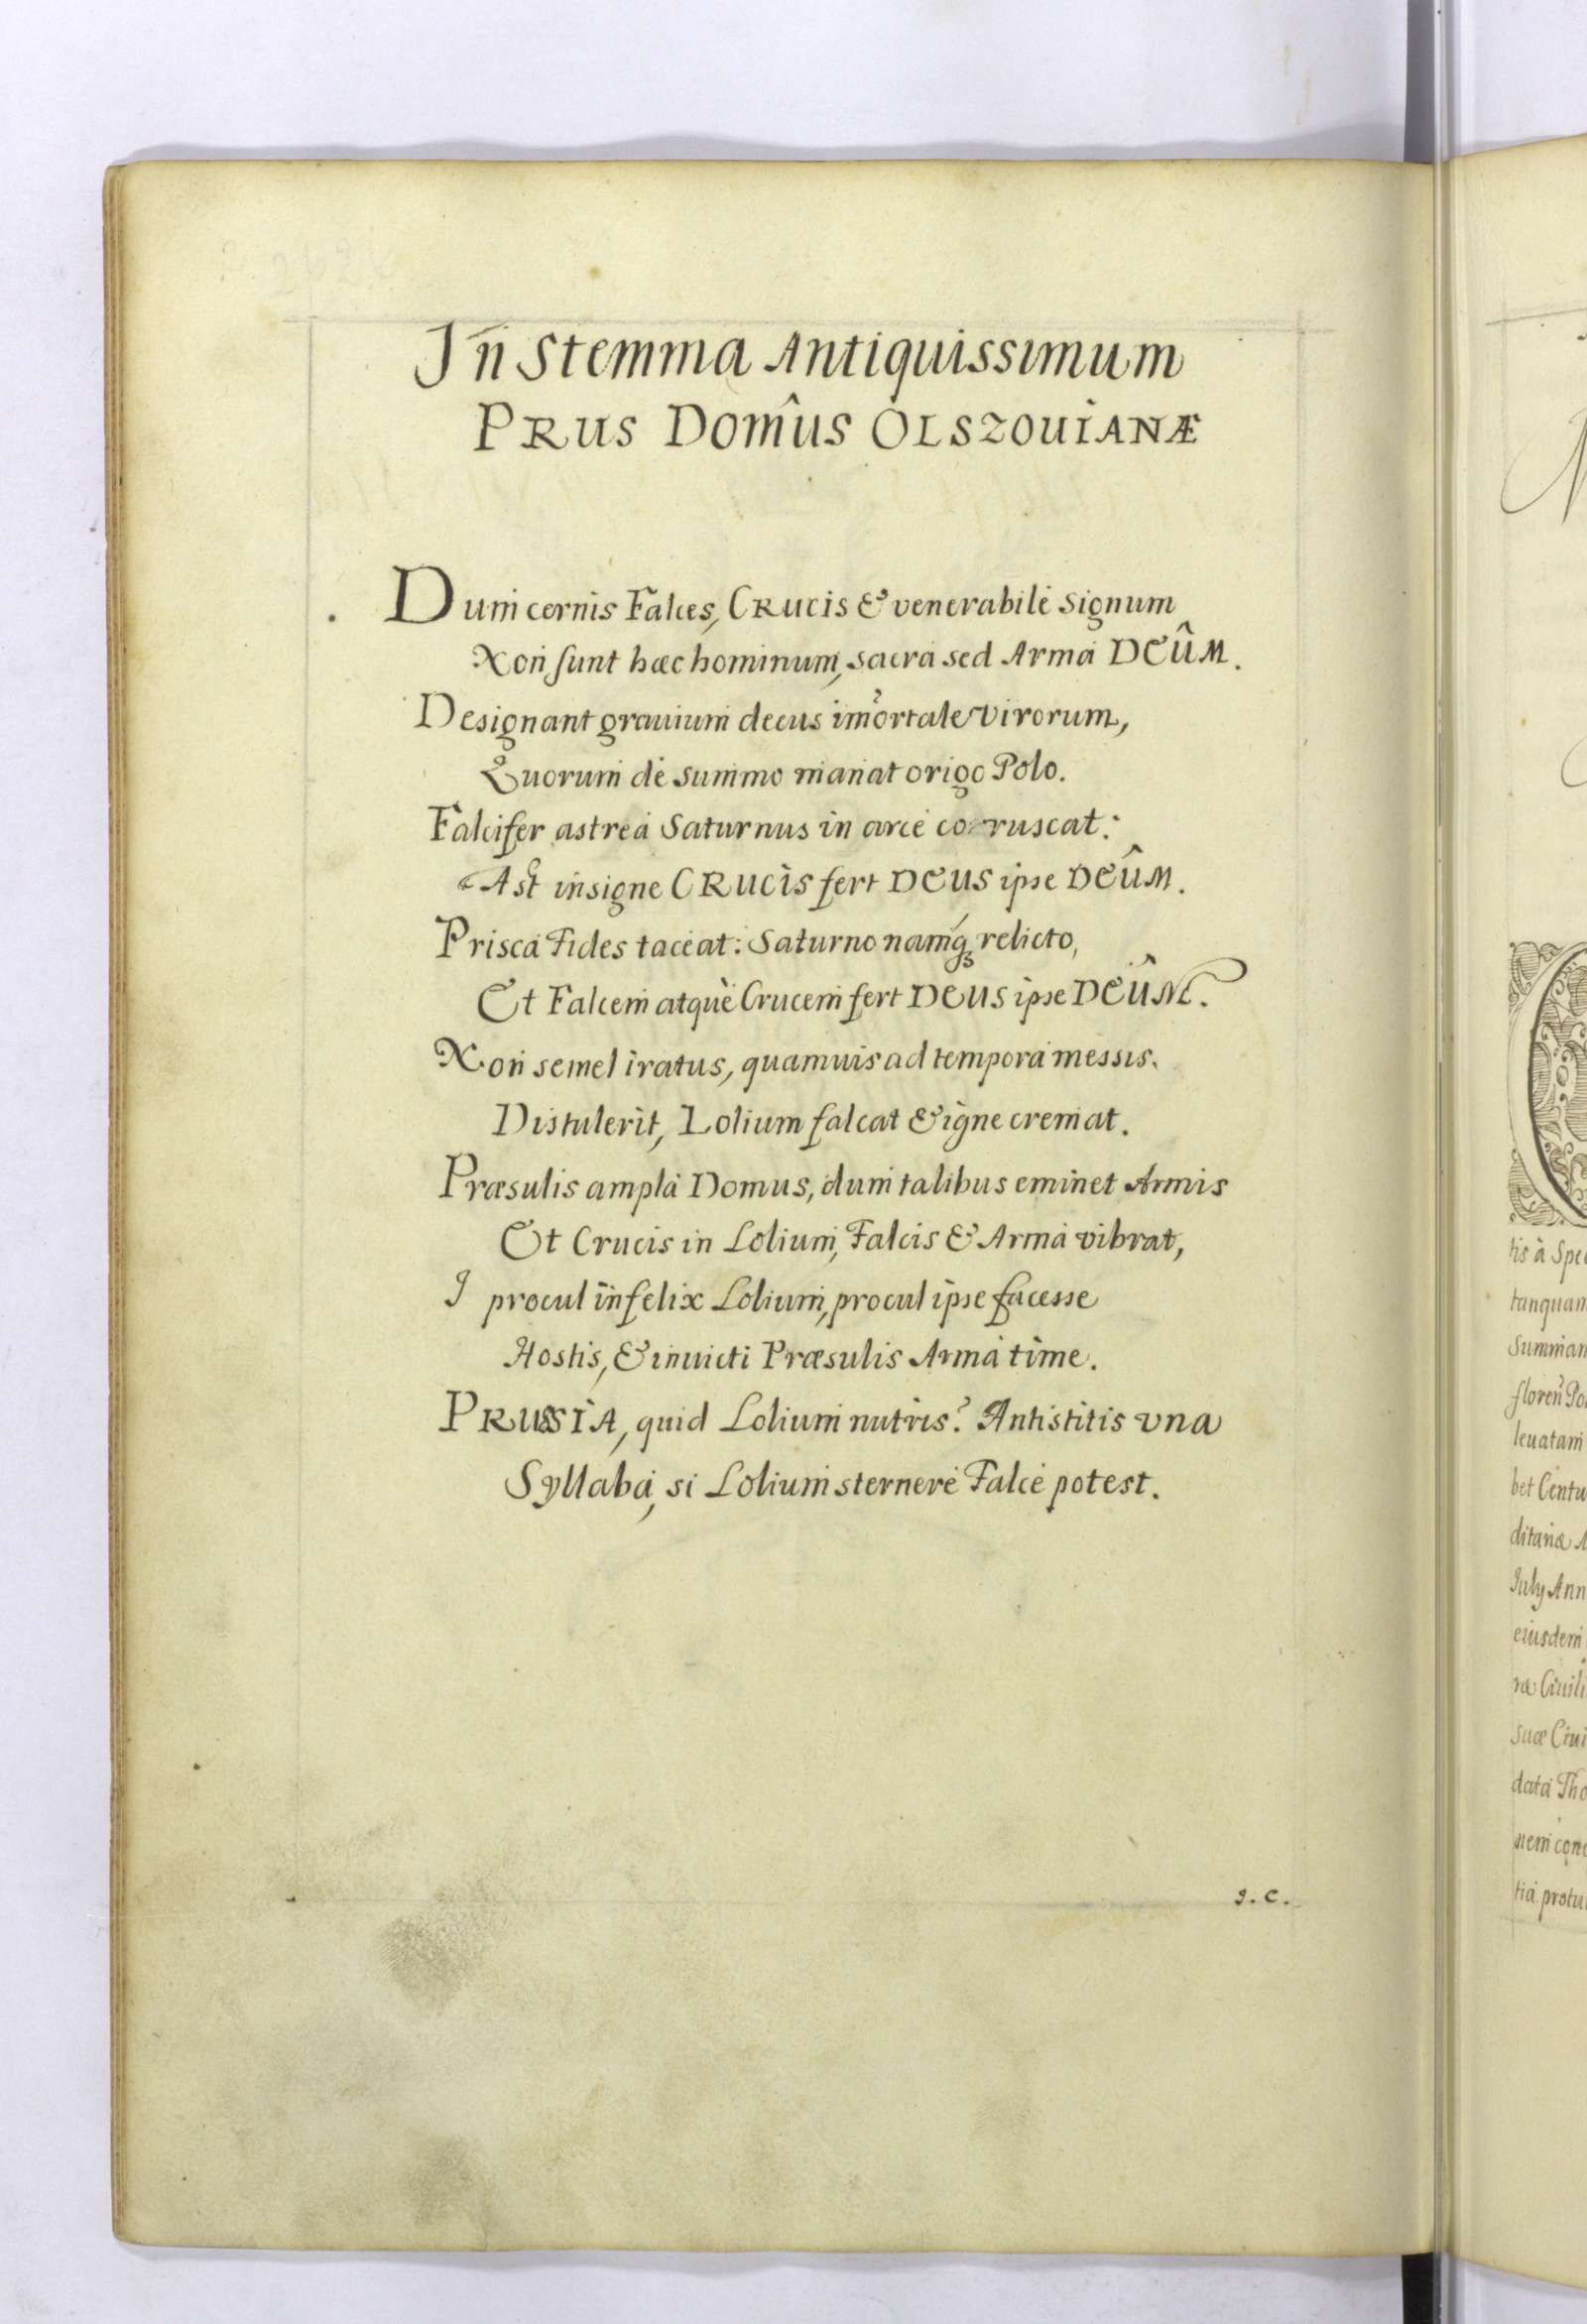 In Stemma Antiquissimum
PRUS Domûs OLSZOUIANÆ
Dum cernis Falces, CRUCIS & venerabile signum
Non sunt hæc hominum, sacra sed Arma DEÛM.
Designant grauium decus imortale virorum,
Quorum de summo manat origo Polo.
Falcifer astrea Saturnus in arce corruscat:
Ast insigne CRUCIS fert DEUS ipse DEÛM.
Prisca Fides taceat: Saturno namq́ꝫ relicto,
Et Falcem atquè Crucem fert DEUS ipse DEÛM.
Non semel iratus, quamuis ad tempora messis.
Distulerit, Lolium falcat & igne cremat.
Præsulis ampla Domus, dum talibus eminet Armis
Et Crucis in Lolium, Falcis & Arma vibrat,
I procul infelix Lolium, procul ipse facesse
Hostis, & inuicti Præsulis Arma time.
PRUSSIA, quid Lolium nutris? Antistitis vna
Syllaba, si Lolium sternere Falce potest.
J. C.
tis à Spe
tanquam
Summam
leuatam
bet Centu
ditariæ A
July Ann
eiusdem
ræ Ciuili
suæ Ciui
data Tho
nem con
tia protu